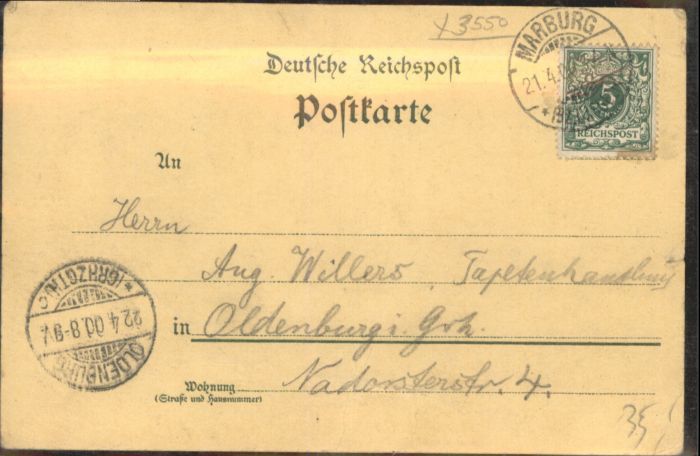 x 3550
MARBURG
21.4.
5
REICHSPOST
Deutsche Reichspost
Postkarte
An
Herrn
Aug. Willers, Tapetenhandlung
in Oldenburg i. Grh.
Nadorsterstr. 4.
Wohnung
(Straße und Hausnummer)
OLDENBURG
22.4.00.8-9V.
(GRHZGTM.)
35